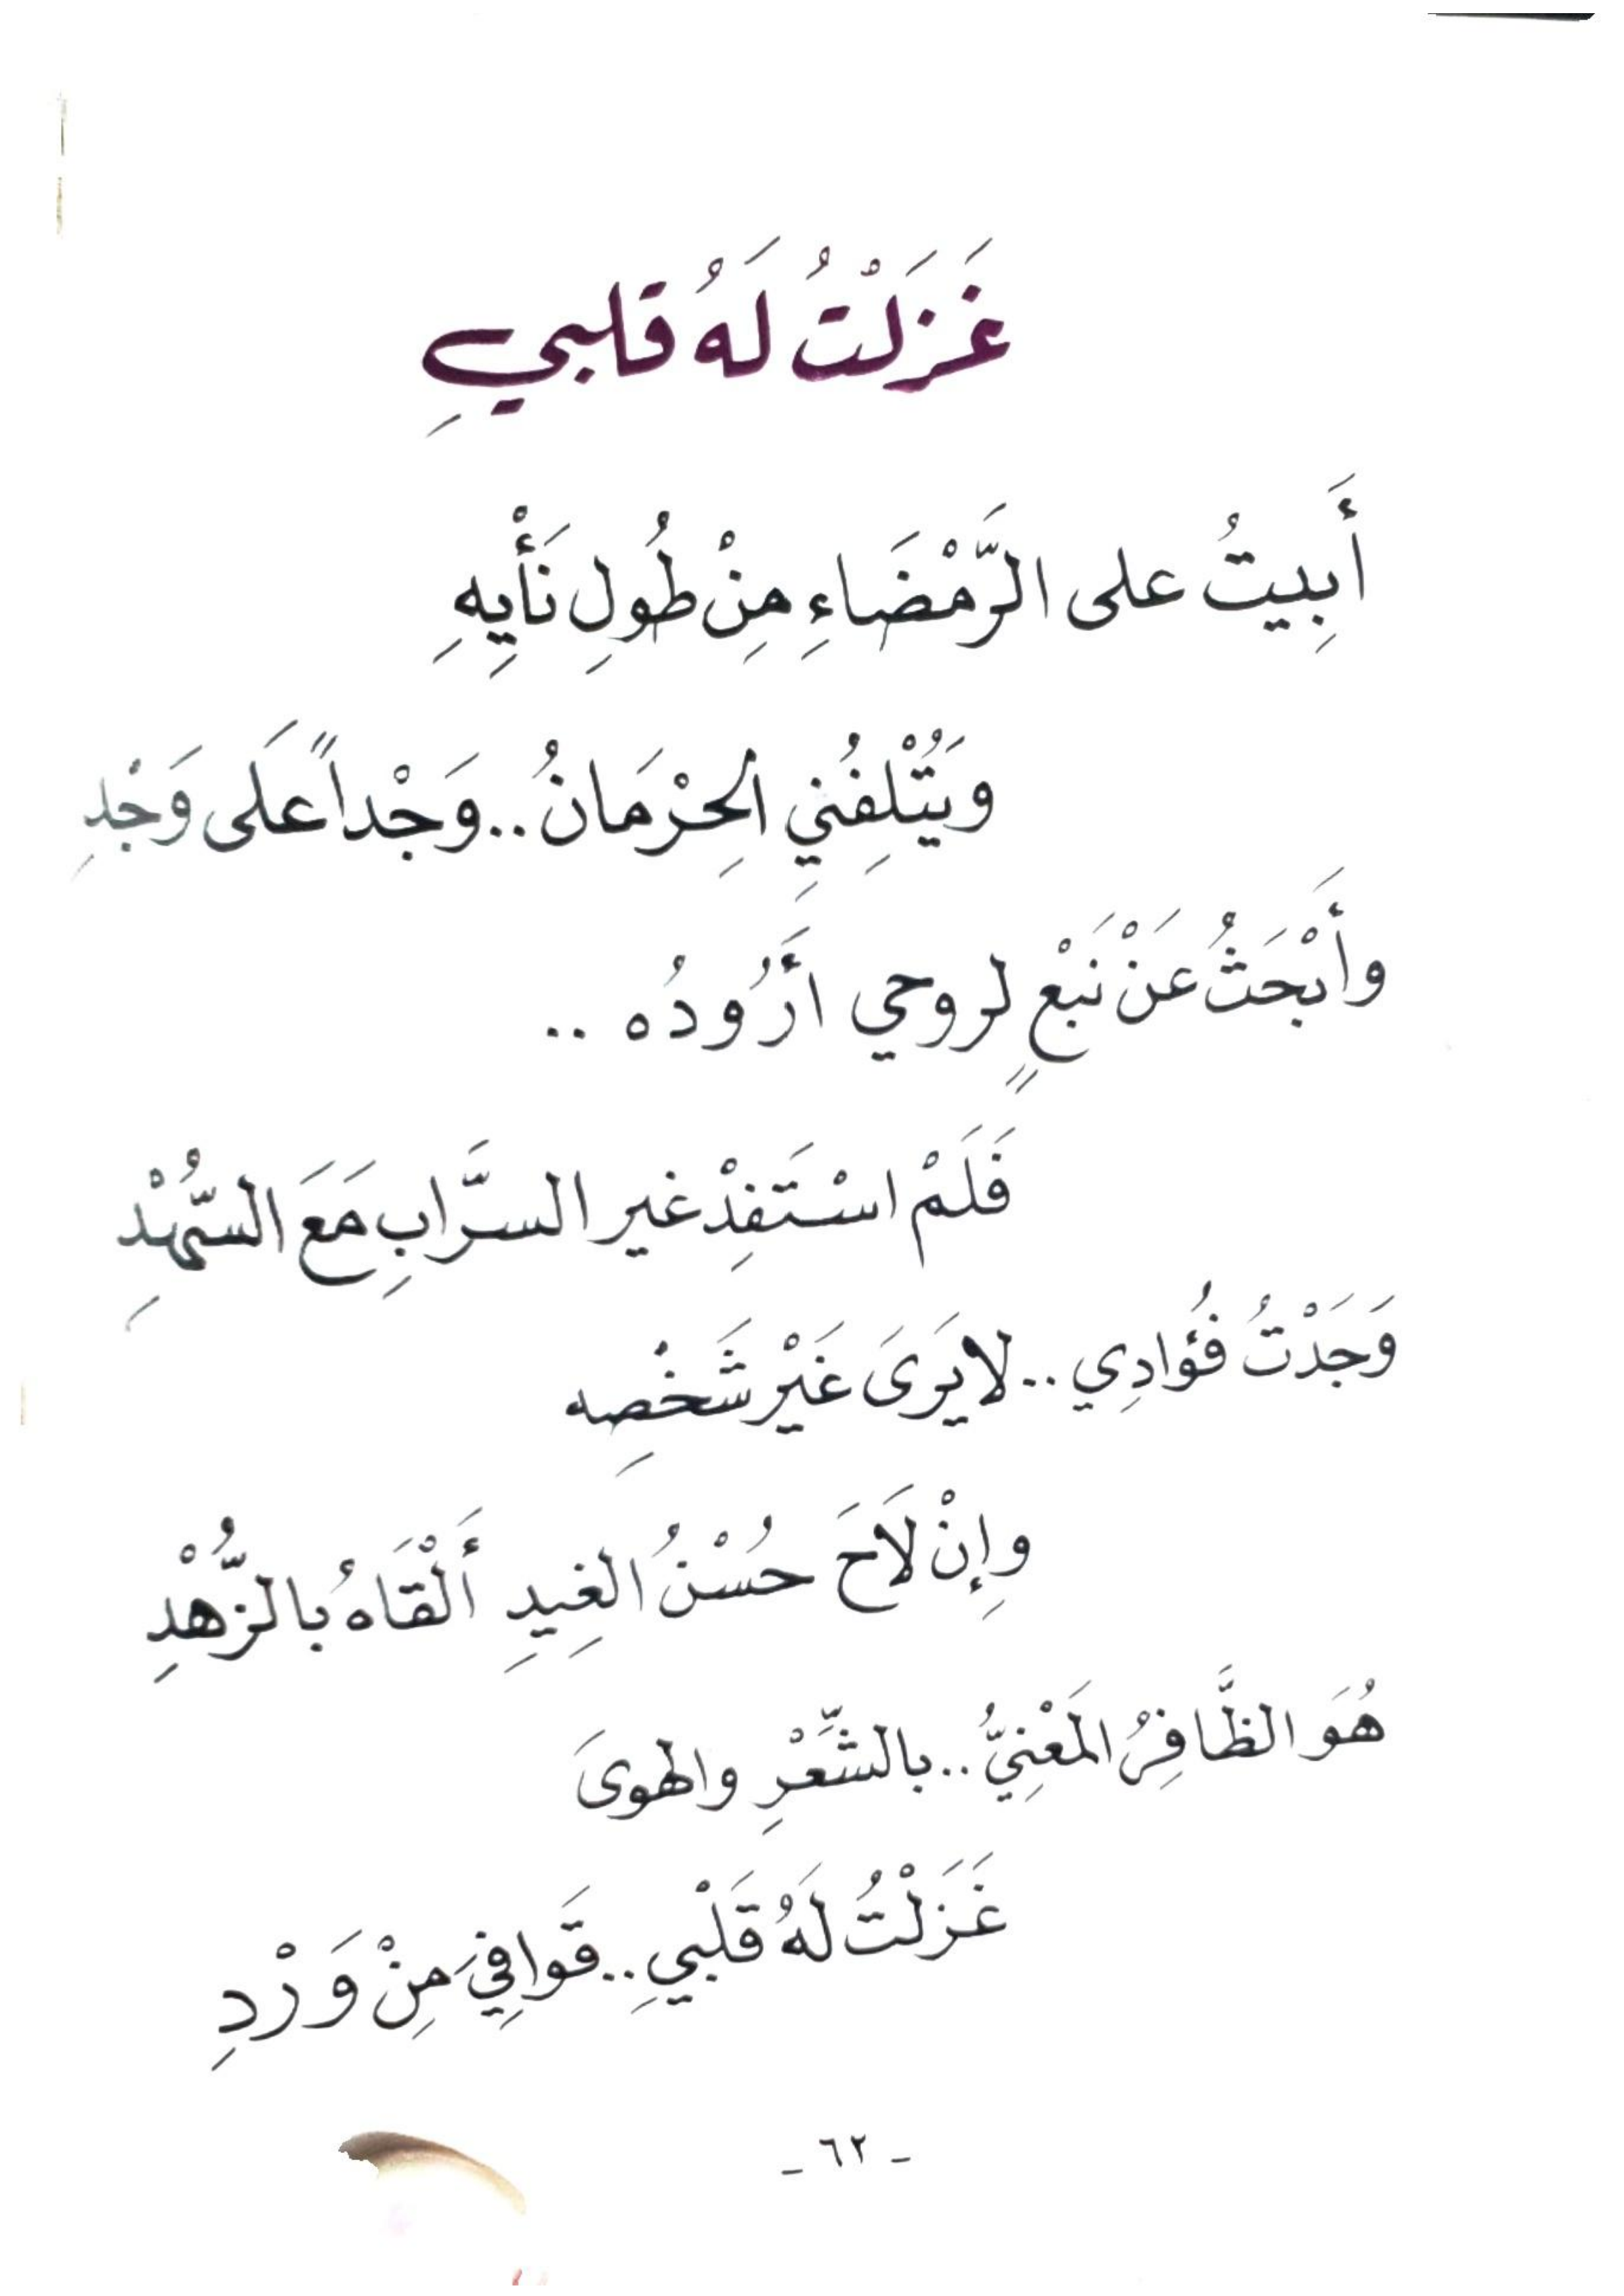 غَزَلْتُ لَهُ قلبيِ
أَبِيتُ على الرَّمْضَاءِ مِنْ طُولِ نَأْيِهِ
ويَتُتْلِفُنِيِ الحِرْمَانُ..وَجْداً عَلَى وَجْدِ
وأَبْحَثُ عَنْ نَبْعٍ لروحي أَرُودُه ..
فَلَمْ اسْتَفِدْ غير السَّرابِ مَعَ السُّهْدِ
وَجَدْتُ فُؤادِي .. لا يَرىَ غَيْر شَخْصِه
وإِنْ لاَحَ حُسْنُ الغِيدِ أَلْقَاهُ بالزُّهْدِ
هُوَ الظَّافِرُ المَعْنِيُّ .. بالشِّعْرِ والهوىَ
غَزَلْتُ لَهُ قَلْبيِ .. قَوافِيَ مِنْ وَرْدِ
- ٦٢ -